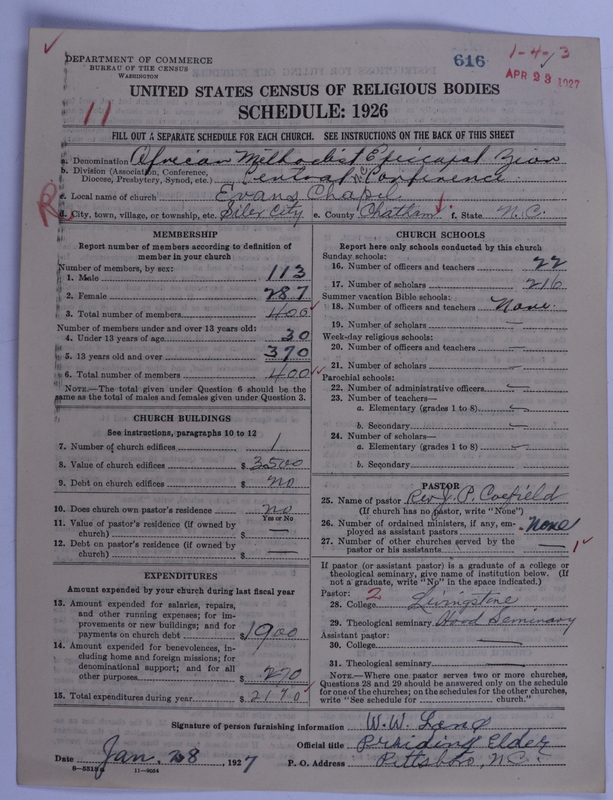 DEPARTMENT OF COMMERCE
BUREAU OF THE CENSUS
WASHINGTON
616
1-4-13
APR 23 1927
UNITED STATES CENSUS OF RELIGIOUS BODIES
11
SCHEDULE: 1926
FILL OUT A SEPARATE SCHEDULE FOR EACH CHURCH. SEE INSTRUCTIONS ON THE BACK OF THIS SHEET
a. Denomination African Methodist Epicapal Zion
b. Division (Association, Conference, Diocese, Presbytery, Synod, etc.) Central Conference
c. Local name of church Evans Chapel
R
d. City, town, village, or township, etc. Siler City e. County Chatham f. State N.C.
MEMBERSHIP
Report number of members according to definition of
member in your church
Number of members, by sex:
1. Male 113
2. Female 287
3. Total number of members 400
Number of members under and over 13 years old:
4. Under 13 years of age 30
5. 13 years old and over 370
6. Total number of members 400
NOTE.—The total given under Question 6 should be the
same as the total of males and females given under Question 3.
CHURCH BUILDINGS
See instructions, paragraphs 10 to 12
7. Number of church edifices 1
8. Value of church edifices $ 3500
9. Debt on church edifices $ no
10. Does church own pastor's residence no
Yes or No
11. Value of pastor's residence (if owned by
church) $ —
12. Debt on pastor's residence (if owned by
church) $ —
EXPENDITURES
Amount expended by your church during last fiscal year
13. Amount expended for salaries, repairs,
and other running expenses; for im-
provements or new buildings; and for
payments on church debt $ 1900
14. Amount expended for benevolences, in-
cluding home and foreign missions; for
denominational support; and for all
other purposes $ 270
15. Total expenditures during year $ 2170
CHURCH SCHOOLS
Report here only schools conducted by this church
Sunday schools:
16. Number of officers and teachers 22
17. Number of scholars 216
Summer vacation Bible schools:
18. Number of officers and teachers None
19. Number of scholars —
Week-day religious schools:
20. Number of officers and teachers —
21. Number of scholars —
Parochial schools:
22. Number of administrative officers —
23. Number of teachers—
a. Elementary (grades 1 to 8) —
b. Secondary —
24. Number of scholars—
a. Elementary (grades 1 to 8) —
b. Secondary
PASTOR
25. Name of pastor Rev J. P. Coefield
(If church has no pastor, write "None")
26. Number of ordained ministers, if any, em-
ployed as assistant pastors None
27. Number of other churches served by the
pastor or his assistants — 1
If pastor (or assistant pastor) is a graduate of a college or
theological seminary, give name of institution below. (If
not a graduate, write "No" in the space indicated.)
Pastor: 2
28. College Livingstone
29. Theological seminary Hood Seminary
Assistant pastor:
30. College —
31. Theological seminary —
NOTE.—Where one pastor serves two or more churches,
Questions 28 and 29 should be answered only on the schedule
for one of the churches; on the schedules for the other churches,
write "See schedule for church."
Signature of person furnishing information W. W. Long
Official title Presiding Elder
Date Jan. 28, 1927 P. O. Address Pittsboro, N.C.
11—9064